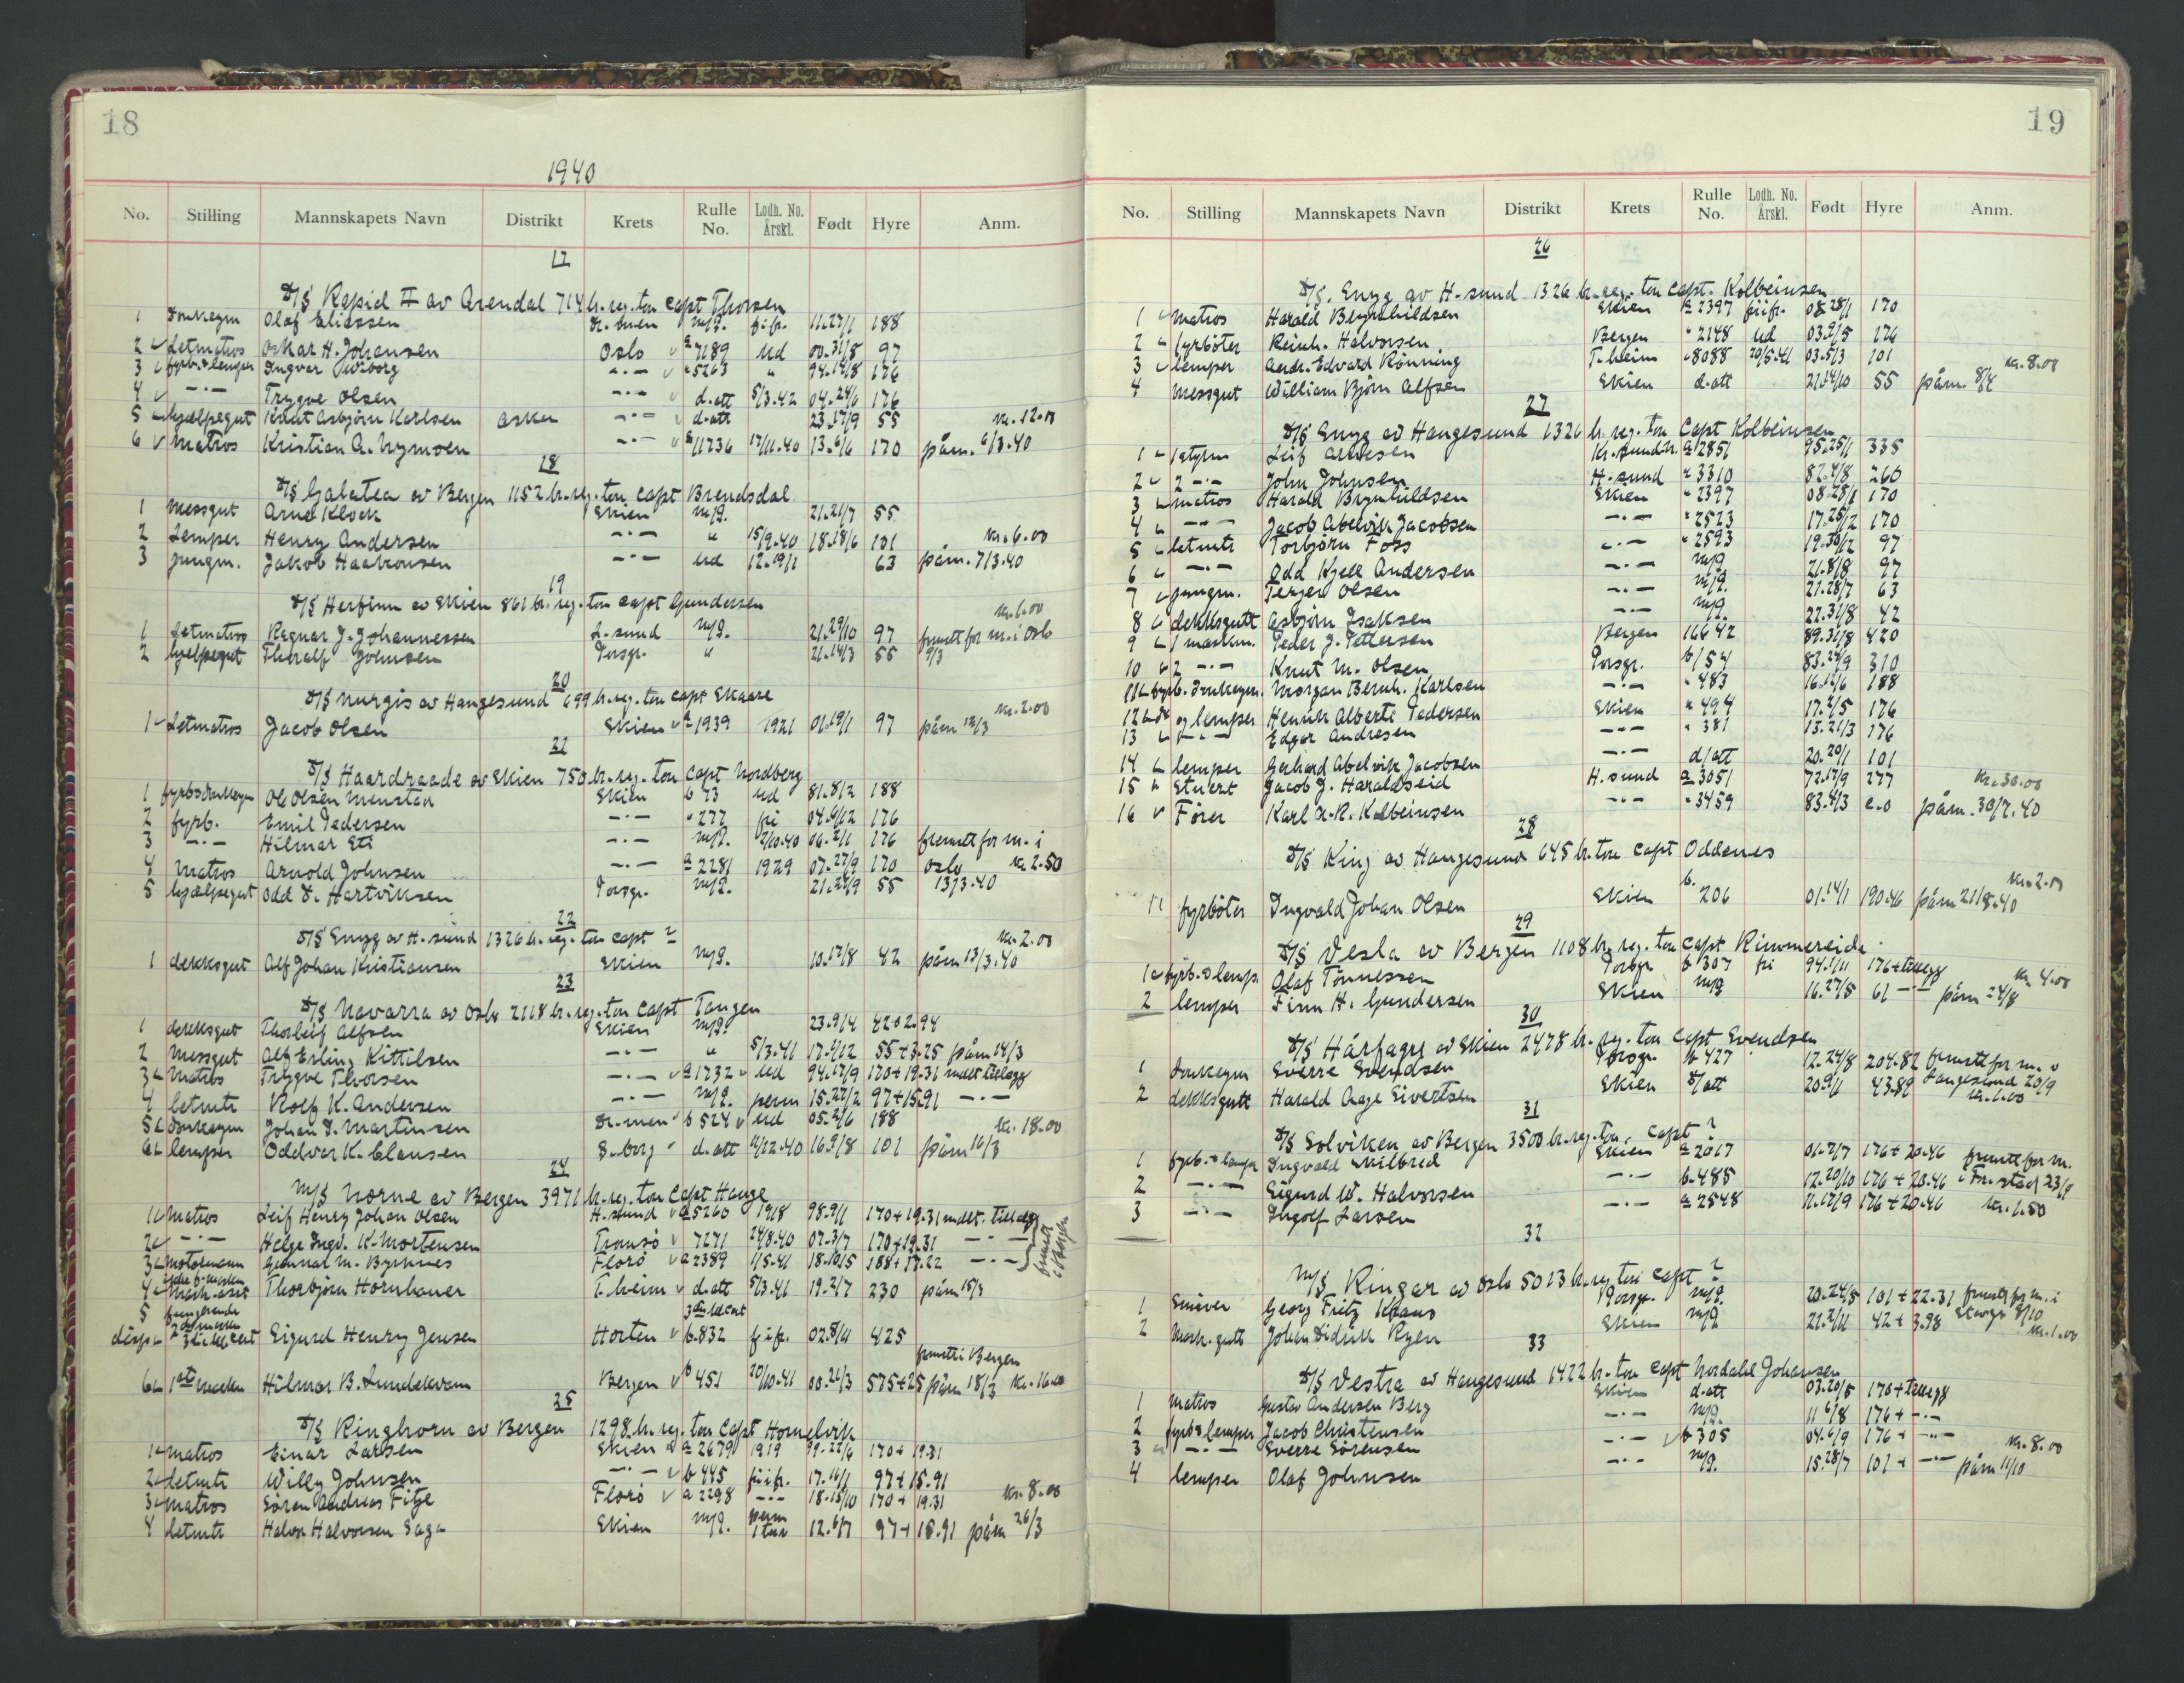 18
1940
No. Stilling Mannskapets Navn Distrikt Krets Rulle No. Lodh. No. Årskl. Født Hyre Anm.
17
D/S Rapid II av Arendal 714 br. reg. ton Capt Thorsen
1 Donkeym Olaf Eliassen Dr. men m/p. fri fr. 11.27/1 188
2 Letmatros Oskar H. Johansen Oslo a 7189 Ud 00.31/8 97
3 fyrb. & lemper Ingvar Wiborg -·- " 5263 " 94.14/8 176
4 -·- Trygve Olsen -·- d.att 5/3.42 04.24/6 176
5 hjælpegut Knut Asbjørn Karlsen Asker -·- d.att 23.17/9 55 Kr. 12.00
6 Matros Kristian A. Nymoen -·- a 11736 17/11.40 13.6/6 170 påm. 6/3.40
18
D/S Galatea av Bergen 1152 br. reg. ton Capt Brendsdal
1 Messgut Arne Klock Skien m/p. 21.21/7 55
2 Lemper Henry Andersen -·- " 15/9.40 18.18/6 101 Kr. 6.00
3 Jungm. Jakob Haakonsen -·- Ud 12.19/1 63 påm. 7/3.40
19
D/S Herfinn av Skien 861 br. reg. ton Capt Gundersen
1 Letmatros Ragnar J. Johannessen L. sund m/p. 21.29/10 97 fremtt for m. i Oslo Kr. 1.00
2 hjelpegut Thoralf Johnsen Porsgr. " 21.14/3 55 9/3
20
D/S Nurgis av Haugesund 699 br. reg. ton Capt Skaare
1 Letmatros Jacob Olsen Skien a 1939 1921 01.19/1 97 påm 12/3 Kr. 2.00
21
D/S Haardraade av Skien 750 br. reg. ton Capt Nordberg
1 fyrb & Donkeym Ole Olsen Menstad Skien b 73 Ud 81.8/2 188
2 fyrb. Emil Pedersen -·- " 277 fri 04.6/12 176
3 -·- Hilmar Eti -·- m/p. 2/10.40 06.2/1 176 fremtt for m. i
4 Matros Arnold Johnsen -·- a 2281 1929 07.27/9 170 Oslo Kr 2.50
5 hjælpegut Odd D. Hartviksen Porsgr. m/p. 21.28/9 55 13/3.40
22
D/S Snyg av H. sund 1326 br. reg. ton Capt ?
1 dekksgut Alf Johan Kristiansen Skien m/p. 10.12/8 42 påm 13/3.40 Kr. 2.00
23
D/S Navarra av Oslo 2118 br. reg. ton Capt Tangen
1 dekksgut Thorleif Alfsen Skien m/p. 23.9/4 42+2.94
2 Messgut Alf Erling Kittilsen -·- " 5/3.41 17.4/12 55+3.25 påm 14/3
3 Matros Trygve Thorsen -·- a 1732 Ud 94.17/9 170+19.31 midlt tillegg
4 letmtr Rolf K. Andersen -·- m/p. perm 15.22/2 97+15.91 -·-
5 Donkeym Johan D. Martinsen Dr. men b 524 Ud 05.2/6 188 Kr. 18.00
6 lemper Oddvar K. Clausen S. borg d.att 4/12.40 16.9/8 101 påm 16/3
24
M/S Norne av Bergen 3971 br. reg. ton Capt Hauge
1 Matros Leif Henry Johan Olsen H. sund a 5260 1918 98.9/11 170+19.31 midlt. tillegg
2 -·- Helge Ingv. K. Mortensen Tromsø 7271 24/8.40 07.3/7 170+19.31 -·-
3 Motormann Gudmar M. Byrknes Florø a 2389 1/5.41 18.10/5 188+17.22 -·-
4 Mask. asst Thorbjørn Hornhaver T. heim d.att 5/3.41 19.2/7 230 påm 15/3
5 fungerende
disp. Sigurd Henry Jensen Horten b. 832 fri fr. 02.8/11 425
fremtt i Bergen
6 1ste maskn Hilmar B. Lundekvam Bergen b 451 20/10.41 00.21/3 575+25 påm 18/3 Kr. 16.00
25
D/S Ringhorn av Bergen 1298 br. reg. ton Capt Hornelvik
1 matros Einar Larsen Skien a 2679 1919 99.22/6 170+19.31
2 letmtr Willy Johnsen -·- b 445 fri fr. 17.16/1 97+15.91
3 matros Søren Andreas Fitje Florø a 2298 -·- 18.15/10 170+19.31 Kr. 8.00
4 letmtr Halvor Halvorsen Saga Skien m/p. perm 1 tur 12.6/7 97+15.91 påm 26/3
19
No. Stilling Mannskapets Navn Distrikt Krets Rulle No. Lodh. No. Årskl. Født Hyre Anm.
26
D/S. Snyg av H-sund 1326 br. reg. ton Capt. Kolbeinsen
1 Matros Harald Brynhildsen Skien a 2397 fri fr. 08.28/1 170
2 fyrbøter Reinh. Halvorsen Bergen " 2148 Ud 03.9/5 176
3 lemper Andr. Edvard Rønning T. heim " 8088 20/5.41 03.5/3 101 Kr. 8.00
4 Messgut William Bjørn Alfsen Skien d.att 21.14/10 55 påm. 8/4
27
D/S Snyg av Haugesund 1326 br. reg. ton Capt Kolbeinsen
1 1 styrm Leif Arnesen Kr. sund N. a 2851 95.25/1 335
2 2 -·- John Johnsen H. sund " 3310 82.4/8 260
3 matros Harald Brynhildsen Skien " 2397 08.28/1 170
4 -·- Jacob Abelvik Jacobsen -·- " 2523 17.25/2 170
5 letmtr Torbjørn Foss -·- " 2593 19.30/12 97
6 -·- Odd Kjell Andersen -·- m/p 21.8/8 97
7 jungm. Terjer Olsen -·- m/p. 21.28/7 63
8 dekksgutt Asbjørn Isaksen -·- m/p 22.31/8 42
9 1 maskm. Peder J. Pettersen Bergen 16642 89.31/8 420
10 2 -·- Knut M. Olsen Porsgr. b 154 83.24/9 310
11 fyrb. Donkeym. Morgan Bernh. Karlsen -·- " 483 16.12/6 188
12 do og lemper Henrik Alberti Pedersen Skien " 494 17.2/5 176
13 -·- Edgar Andresen -·- " 381 13.21/3 176
14 lemper Gerhard Abelvik Jacobsen -·- d/att 20.20/1 101
15 Stuert Jacob J. Haraldseid H. sund a 3051 72.17/9 277 Kr. 30.00
16 Fører Karl A. R. Kolbeinsen -·- " 3459 83.4/3 e.o påm. 30/7.40
28
D/S King av Haugesund 645 br. ton Capt Oddenes
1 fyrbøter Ingvald Johan Olsen Skien b. 206 01.14/1 190.46 påm 21/8.40 Kr. 2.00
29
D/S Vesla av Bergen 1108 br. reg. ton Capt Rimmereide
1 fyrb. & lemp. Olaf Tønnessen Porsgr b 307 fri 94.1/11 176+tillegg
2 lemper Finn H. Gundersen Skien m/p 16.27/5 61 -·- påm 24/8 Kr. 4.00
30
D/S Hårfagre av Skien 2478 br. reg. ton Capt Svendsen
1 Donkeym Sverre Svendsen Porsgr. b 427 12.24/8 204.82 fremtt for m. i
2 dekksgutt Harald Aage Sivertsen Skien d/att 20.9/1 43.89 Langesund 20/9 Kr. 1.00
31
D/S Solviken av Bergen 3500 br. reg. ton. Capt ?
1 fyrb. & lemp Ingvald Skilbred Skien a 2017 01.2/7 176+20.46 fremtt for m.
2 -·- Sigurd W. Halvorsen -·- b. 485 17.20/10 176+20.46 i Fr. stad 23/9
3 -·- Ingolf Larsen -·- a 2548 11.17/9 176+20.46 Kr. 1.50
32
M/S Ringar av Oslo 5013 br. reg. ton Capt ?
1 Smører Georg Fritz Kraus Porsgr. m/p. 20.24/8 101+22.31 fremtt for m. i
2 Mask. gutt Johan Didrik Ryen Skien m/p 21.2/11 42+3.98 Stavgr 8/10 Kr. 1.00
33
D/S Vestra av Haugesund 1422 br. ton Capt Nordahl Johansen
1 Matros Gustav Andersen Berg Skien d.att 03.20/5 170+tillegg
2 fyrb & lemper Jacob Christensen -·- m/p. 11 6/8 176+ -·-
3 -·- Sverre Sørensen -·- b 305 04.6/9 176+ -·- Kr. 8.00
4 lemper Olaf Johnsen -·- m/p. 15.28/7 101+ -·- påm 11/10